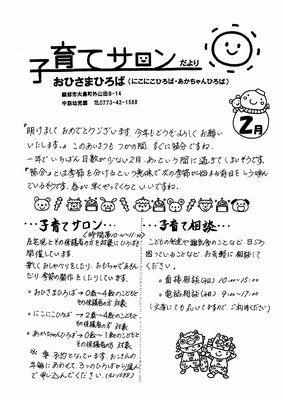 子育てサロンだより
おひさまひろば(にこにこひろば・あかちゃんひろば)
綾部市大島町外山田8-14
中筋幼児園 TEL0773-42-1588
2月
『明けまして おめでとうございます。今年もどうぞよろしく お願い
いたします。』このあいさつも つかの間、すぐに節分ですね。
一年でいちばん日数が少ない2月、あという間に過ぎてしまいそうです。
『節分』とは季節を分けるという意味で次の季節が始まる前日をいう呼ん
でいるそうです。春が早くやってくるといいですね。
・・・子育てサロン・・・
〈時間帯10:00〜11:30〉
在宅児とその保護者の方を対象にひろばを
開催しています。
楽しくおしゃべりをしたり、おもちゃであそん
だり、季節の製作をしたりしています。
・おひさまひろば→0歳〜4歳のこどもと
その保護者の方 対象
・にこにこひろば→2歳〜4歳のこどもと
その保護者の方 対象
・あかちゃんひろば→0歳〜1歳のこどもと
その保護者の方 対象
※ 要予約となっています。お子さんの
年齢にあわせて、3つのひろばから選ん
で申し込んでください。(42-1588)
・・・子育て相談・・・
こどもの発達や離乳食のことなど、日ごろ
困っていることなど、お気軽に相談して
ください。
・面接相談 10:00〜15:00
・電話相談 9:00〜17:00